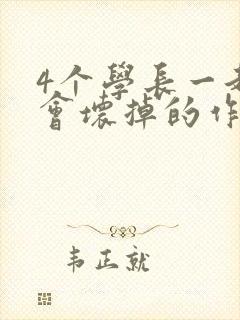 4个學長一起
會壞掉的作
韦正就